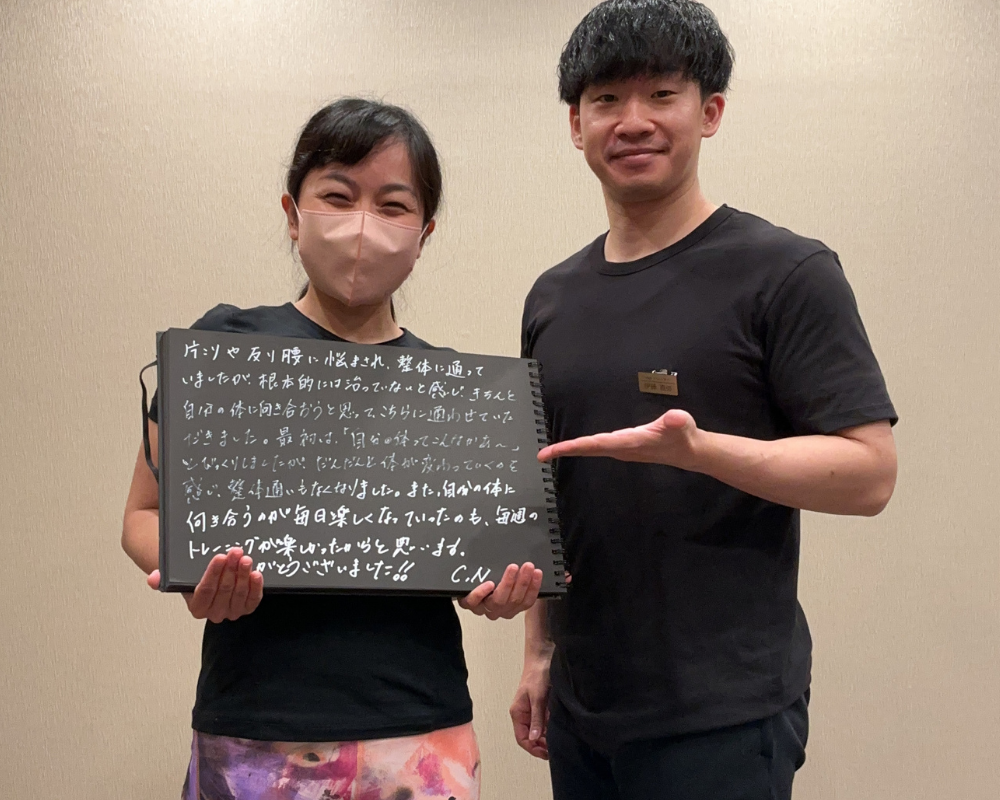 片こりや反り腰に悩まされ、整体に通って
いましたが、根本的には治っていないと感じ、きちんと
自分の体に向き合おうと思って、こちらに通わせていた
だきました。最初は、「自分の体ってこんなかぁ〜」
とびっくりしましたが、だんだんと体が変わっていくのを
感じ、整体通いもなくなりました。また、自分の体に
向き合うのが毎日楽しくなっていったのも、毎週の
トレーニングが楽しかったからと思います。
がとうございました!!
C.N